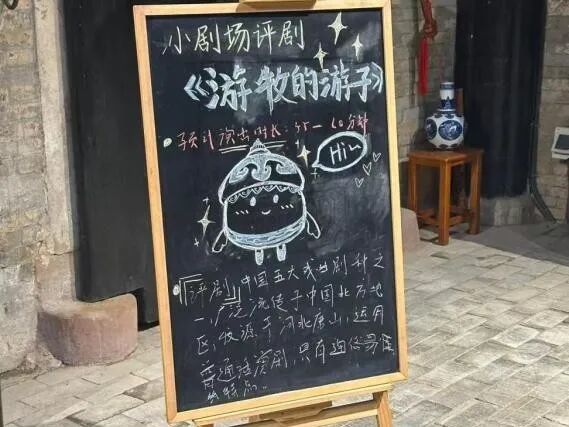 小剧场评剧
《游牧的游子》
预计演出时长：45－60分钟
Hi~
「评剧」中国五大戏曲剧种之
一，广泛流传于中国北方地
区，发源于河北唐山，运用
普通话演剧，具有通俗易懂
的特点。